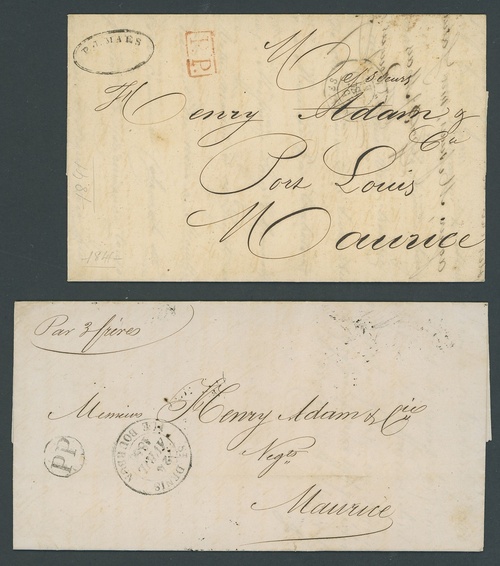 P.J. MAES
P.P.
Messieurs
Henry Adam &
Cie
Port Louis
Maurice
1841
1841
Par 3 frères
Messieurs Henry Adam & Cie
Negts
Maurice
PP
ST DENIS
ILE BOURBON